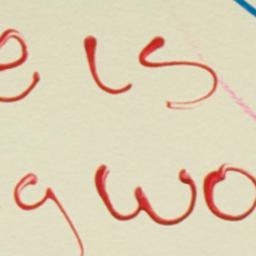 e is
g wo